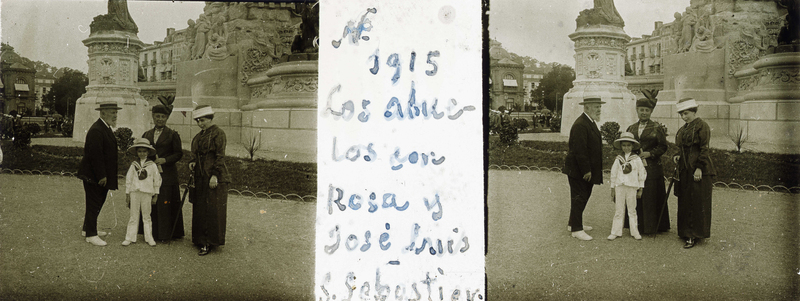 Nº
1915
Los abue-
los con
Rosa y
José Luis
S. Sebastian.